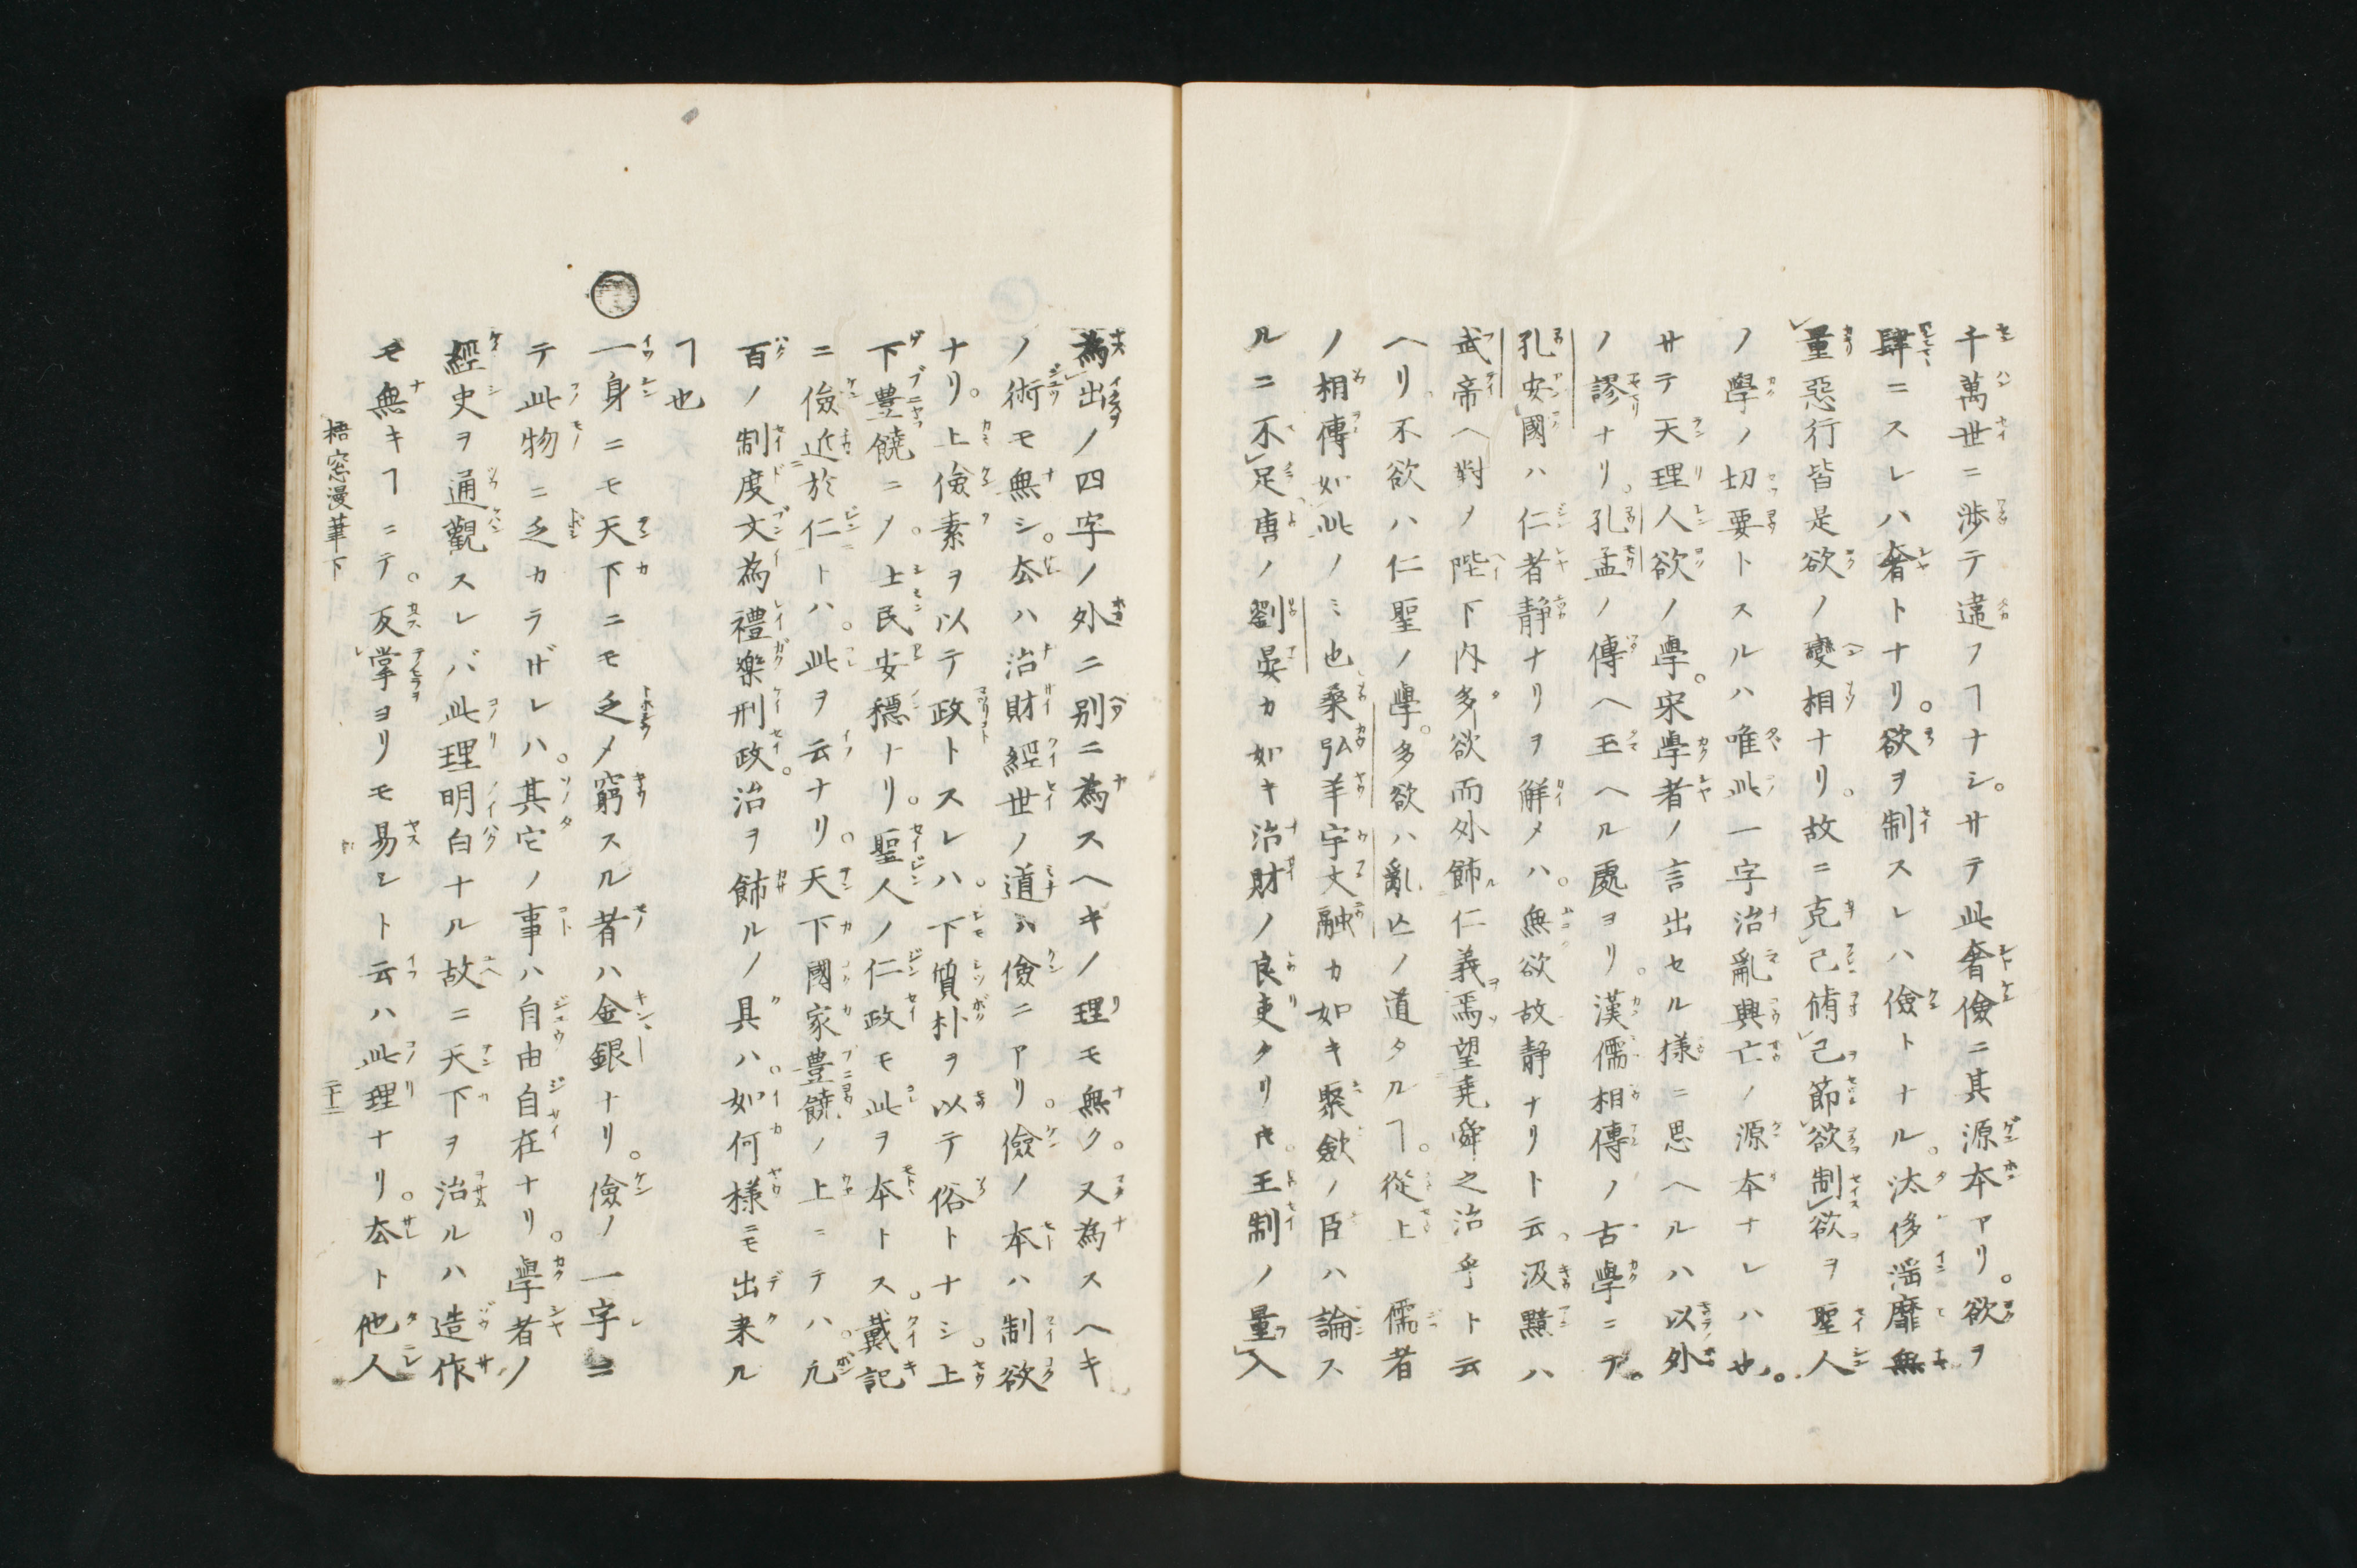 千萬世ニ渉テ違フヿナシ。サテ此奢儉ニ其源本アリ。欲ヲ
肆ニスレハ奢トナリ。欲ヲ制スレハ儉トナル。汰侈滛靡無
量惡行皆是欲ノ變相ナリ。故ニ克己脩己節欲制欲ヲ聖人
ノ學ノ切要トスルハ唯此一字治亂興亡ノ源本ナレハ也。
サテ天理人欲ノ學。宋學者ノ言出セル様ニ思ヘルハ以外
ノ謬ナリ。孔孟ノ傳ヘ玉ヘル處ヨリ。漢儒相傳ノ古學ニテ。
孔安國ハ仁者靜ナリヲ解メハ。無欲故靜ナリト云。汲黯ハ
武帝ヘ對ノ陛下内多欲而外飾仁義焉望堯舜之治乎ト云
ヘリ不欲ハ仁聖ノ學。多欲ハ亂亡ノ道タルヿ。從上儒者
ノ相傳如此ノミ也桑弘羊宇文融カ如キ聚斂ノ臣ハ論ス
ルニ不足唐ノ劉晏カ如キ治財ノ良吏タリ𪜈。王制ノ量入
為出ノ四字ノ外ニ別ニ為スヘキノ理モ無ク。又為スヘキ
ノ術モ無シ。厺ハ治財經世ノ道ハ儉ニアリ。儉ノ本ハ制欲
ナリ。上儉素ヲ以テ政トスレハ。下質朴ヲ以テ俗トナシ。上
下豊饒ニノ。上民安穩ナリ。聖人ノ仁政モ此ヲ本トス。戴記
ニ儉近於仁トハ。此ヲ云ナリ。天下國家豊饒ノ上ニテハ。凢
百ノ制度文為禮樂刑政。治ヲ飾ルノ具ハ。如何様ニモ出来ル
ヿ也
一身ニモ天下ニモ乏メ窮スル者ハ金銀ナリ。儉ノ一字ニ
テ此物ニ乏カラザレハ。其它ノ事ハ自由自在ナリ。學者ノ
經史ヲ通觀スレバ此理明白ナル故ニ天下ヲ治ルハ造作
モ無キヿニテ。反掌ヨリモ易シト云ハ此理ナリ。厺ト他人
梧窓漫筆下
二十二